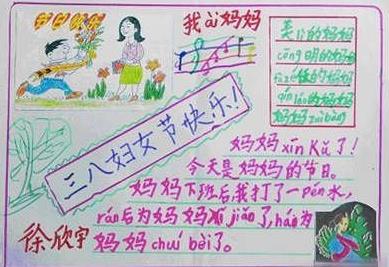 节日快乐
我ài妈妈
美丽的妈妈
cōng明的妈妈
fùzé任的妈妈
qínláo的妈妈
妈妈zuì bàng
三八妇女节快乐!
妈妈xīn Kǔ了!
今天是妈妈的节日。
妈妈下班后我打了一pén水,
rán后为妈妈Xǐ jiǎo了,hái为
妈妈chuí bèi了。
徐欣宇